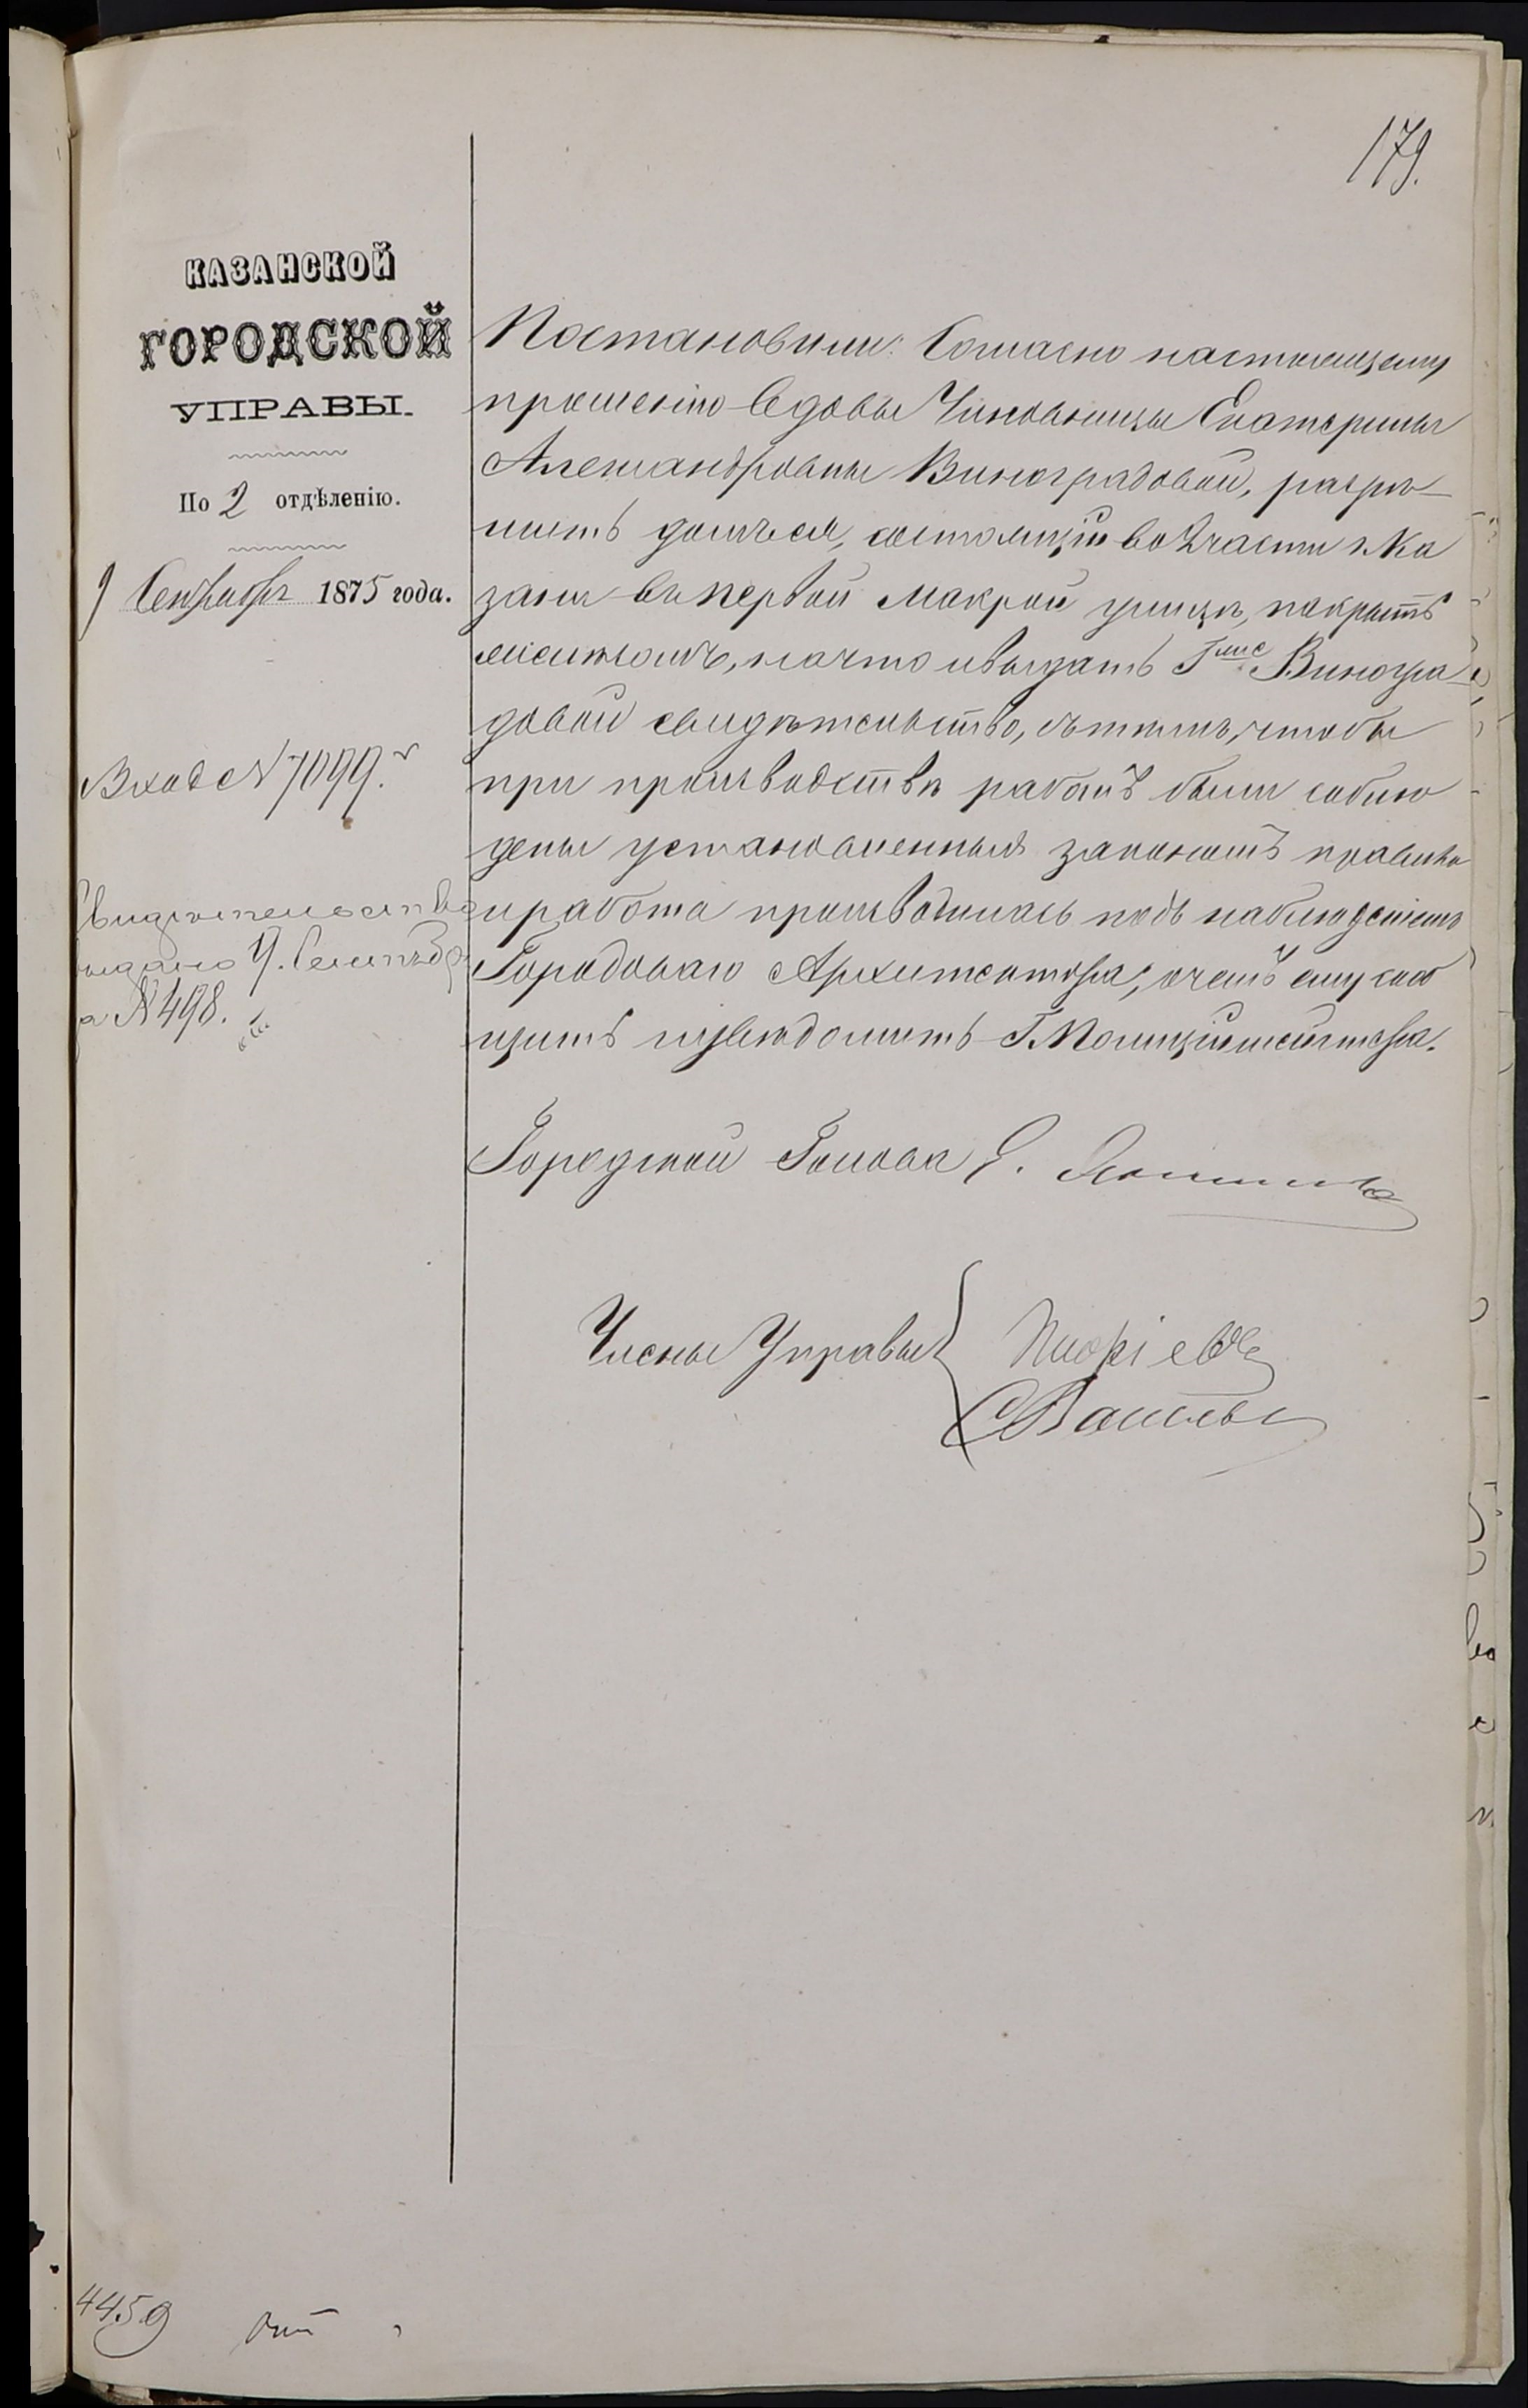 179.
КАЗАНСКОЙ
ГОРОДСКОЙ
УПРАВЫ.
По 2 отдѣленію.
9 Сентября 1875 года.
Вход № 7099.
Свидѣтельство
выдано 9. Сентябр
а № 498.
Постановили: Согласно настоящему
прошенію Вдовы Чиновницы Екатерины
Александровны Виноградовой, разрѣ-
шить домъ ея, состоящій во 2 части г. Ка
зани въ первой Мокрой улицѣ, покрыть
на что и выдать Г-жѣ Виногра-
довой свидѣтельство, съ тѣмъ, чтобы
при производствѣ работъ были соблю
дены установленныя закономъ правила
и работа производилась подъ наблюденіемъ
Городоваго Архитектора, о чемъ ему сооб
щить и увѣдомить Г. Полиціймейстера.
Городской Голова
Члены Управы
4459